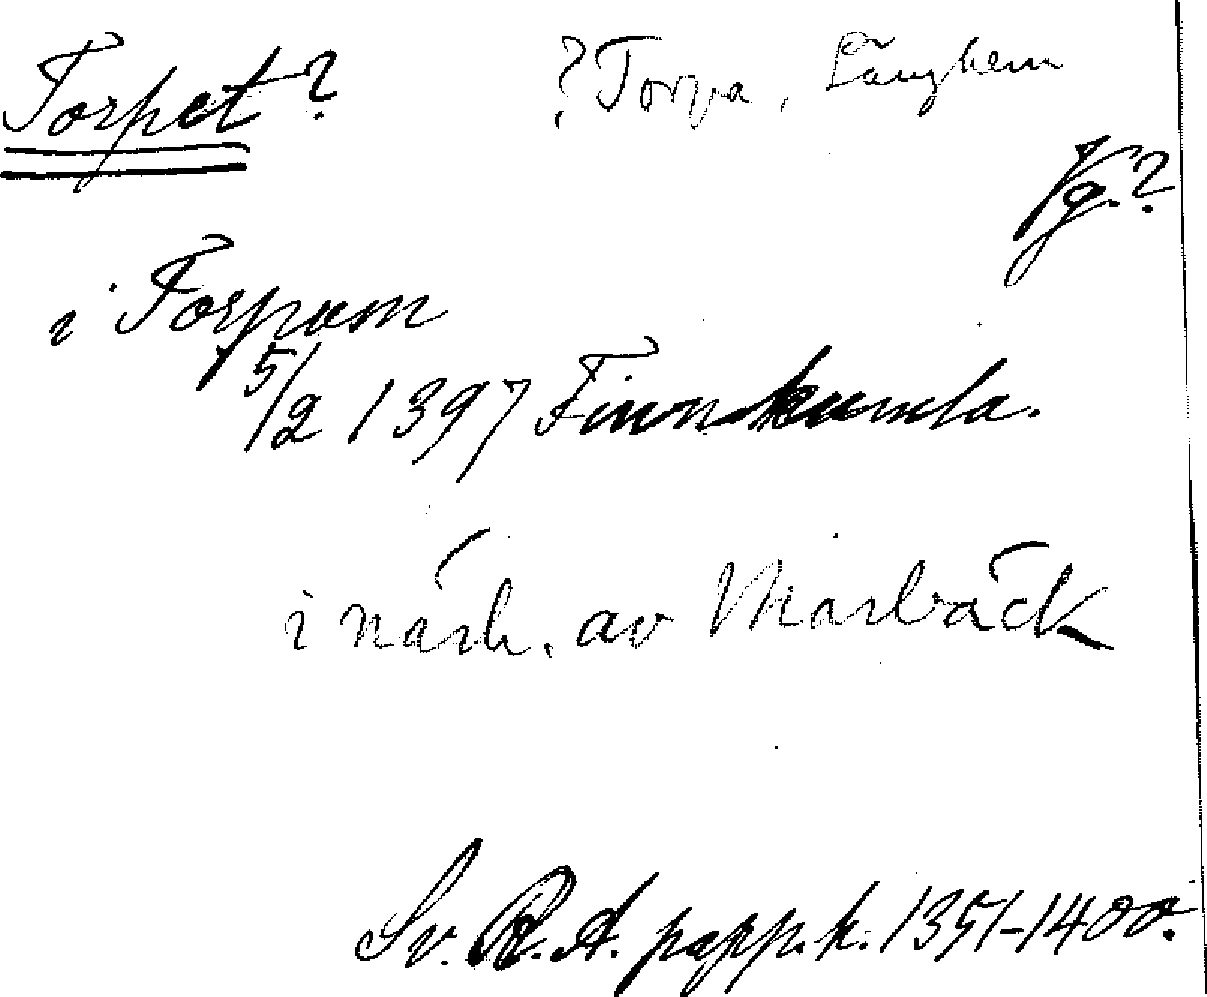 Torpet? ? Torpa, Länghem
Vg.?
i Torpum
5/2 1397 Finnekumla.
i närh. av Marbäck
Sv. R. A. papp. k. 1351-1400.